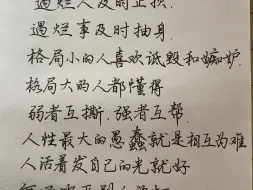 遇烂人及时止损.
遇烂事及时抽身.
格局小的人喜欢诋毁和嫉妒.
格局大的人都懂得
弱者互撕,强者互帮.
人性最大的愚蠢就是相互为难
人活着发自己的光就好